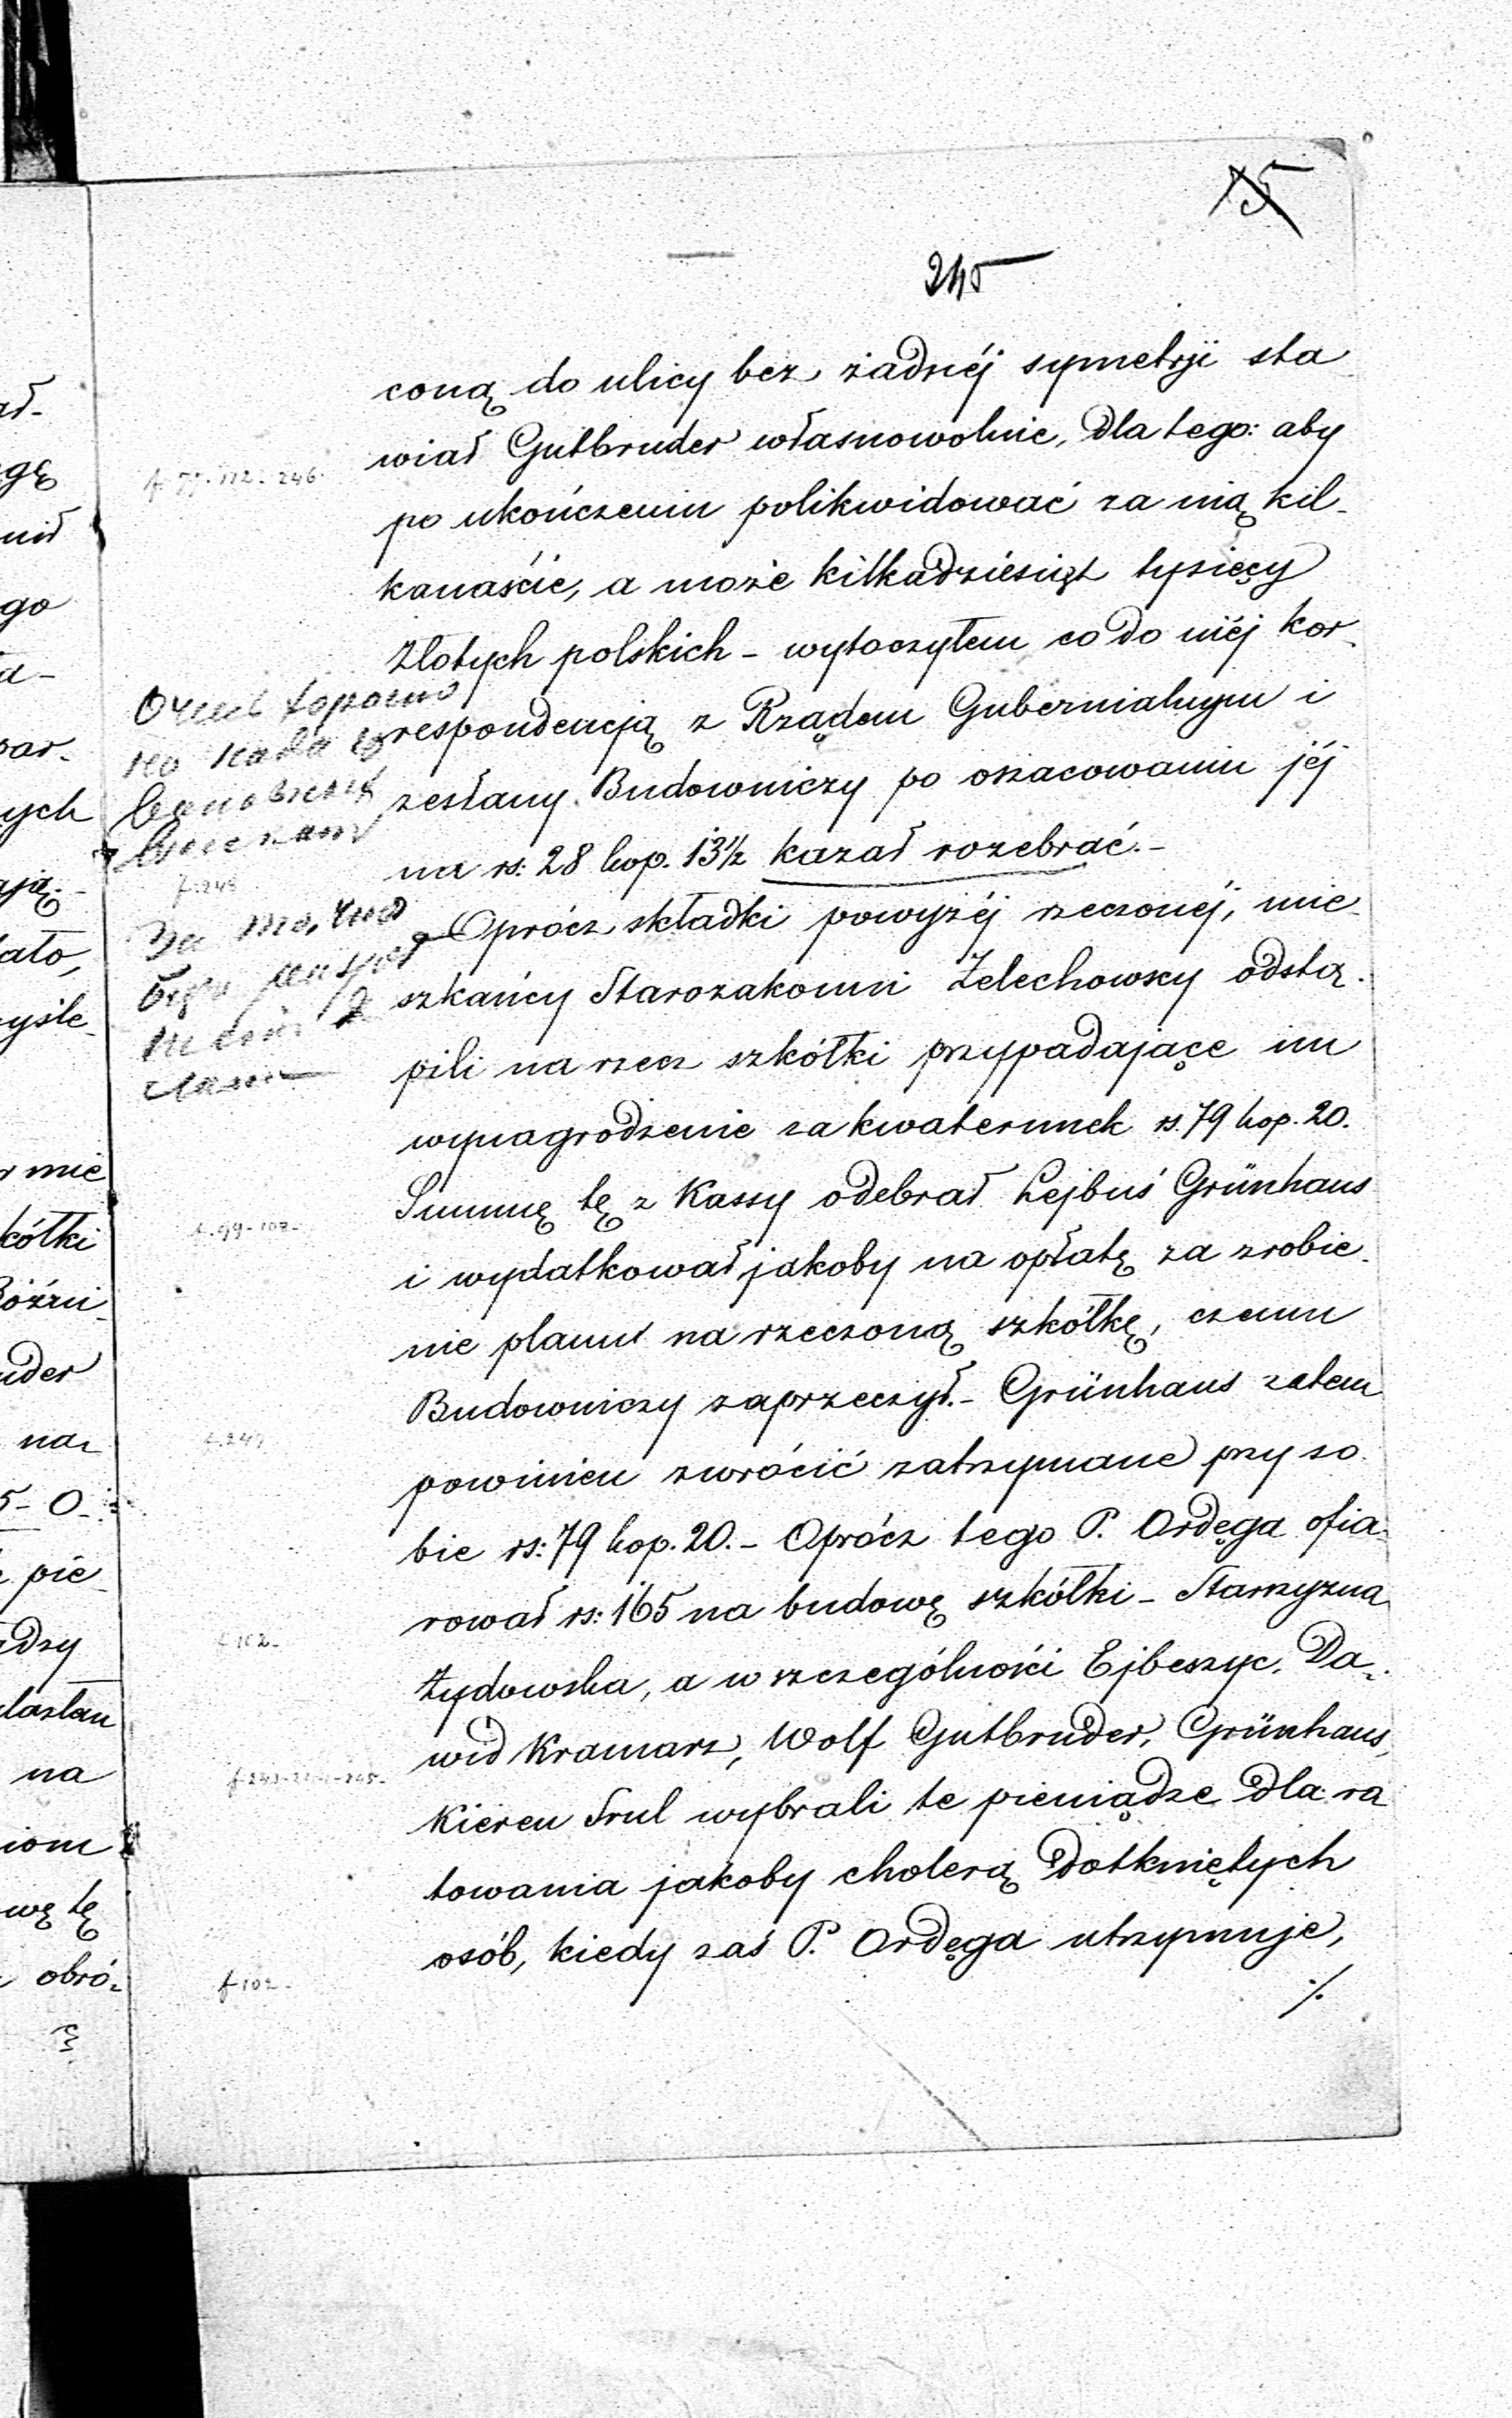 15
245
coną do ulicy bez żadnéj symetrji sta
wiał Gutbruder własnowolnie, dla tego: aby
f. 77-112-246.
po ukończeniu polikwidować za nią kil-
kanaście, a może kilkadziesiąt tysięcy
złotych polskich - wytoczyłem co do niéj kor-
respondencją z Rządem Gubernialnym i
zesłany Budowniczy po oszacowaniu jéj
na rs: 28 kop. 13½ kazał rozebrać.-
f. 249
Oprócz składki powyżéj rzeczonéj, mie-
szkańcy Starozakonni Żelechowscy odstą-
pili na rzecz szkółki przypadające im
wynagrodzenie za kwaterunek rs. 79 kop. 20.
Summę tę z Kassy odebrał Lejbuś Grünhaus
f. 99-102-
i wydatkował jakoby na opłatę za zrobie-
nie planu na rzeczoną szkółkę, czemu
Budowniczy zaprzeczył.- Grünhaus zatem
f. 249
powinien zwrócić zatrzymane przy so-
bie rs: 79 kop. 20.- Oprócz tego P. Ordęga ofia-
rował rs: 165 na budowę szkółki - Starszyzna
f. 102-
żydowska, a w szczególności Ejbeszyc, Da-
wid Kramarz, Wolf Gutbruder, Grünhaus,
f. 243-244-245-
Kieren Srul wybrali te pieniądze dla ra
towania jakoby cholerą dotkniętych
osób, kiedy zaś P. Ordęga utrzymuje,
f 102-
./.